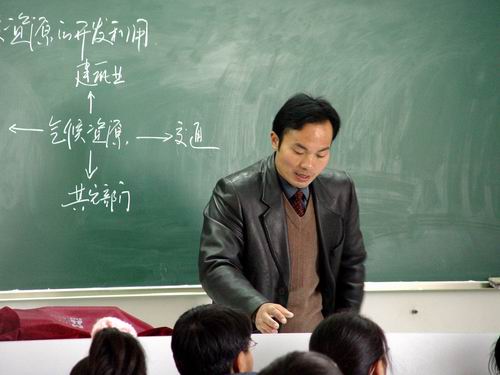 资源的开发利用
建筑业
气候资源 交通
其它部门